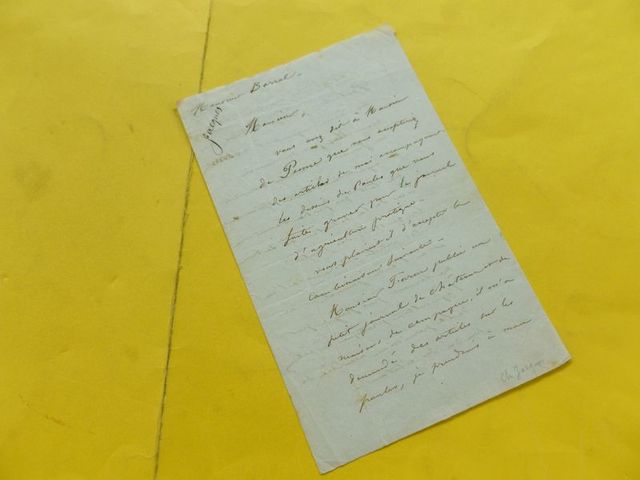 Monsieur Barral.
Jacques
Monsieur,
vous avez dit à Monsieur
de Penne que vous acceptiez
des articles de moi accompagnant
les dessins de Poules que vous
faites graver pour le journal
d'agriculture pratique.
vous plairait il d'accepter la
combinaison suivante.
Monsieur publie un
petit journal de Châteaux et de
maisons de campagne, il m'a
demandé des articles sur les
poules, je prendrais à mon
Ch. Jacque